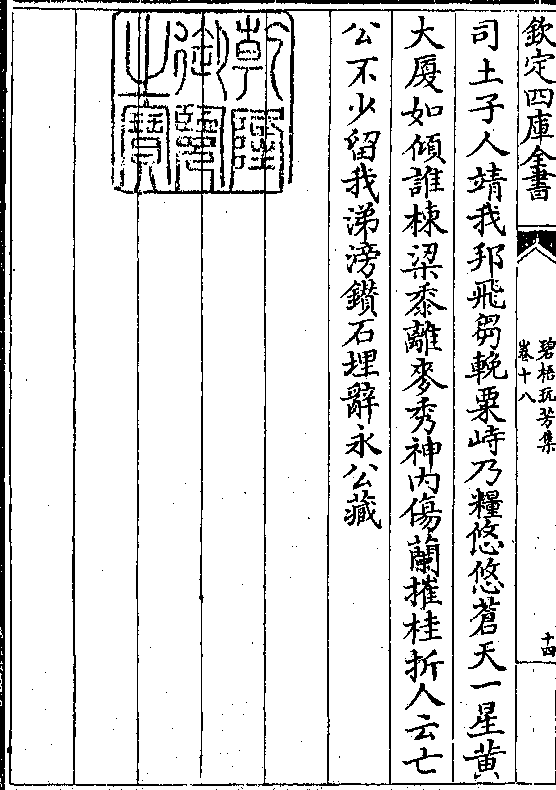 欽定四庫全書
碧梧玩芳集
卷十八
十四
司土子人靖我邦飛芻輓粟峙乃糧悠悠蒼天一星黄
大廈如傾誰棟梁黍離麥秀神内傷蘭摧桂折人云亡
公不少留我涕滂鑚石埋辭永公藏
乾隆御覽之寶